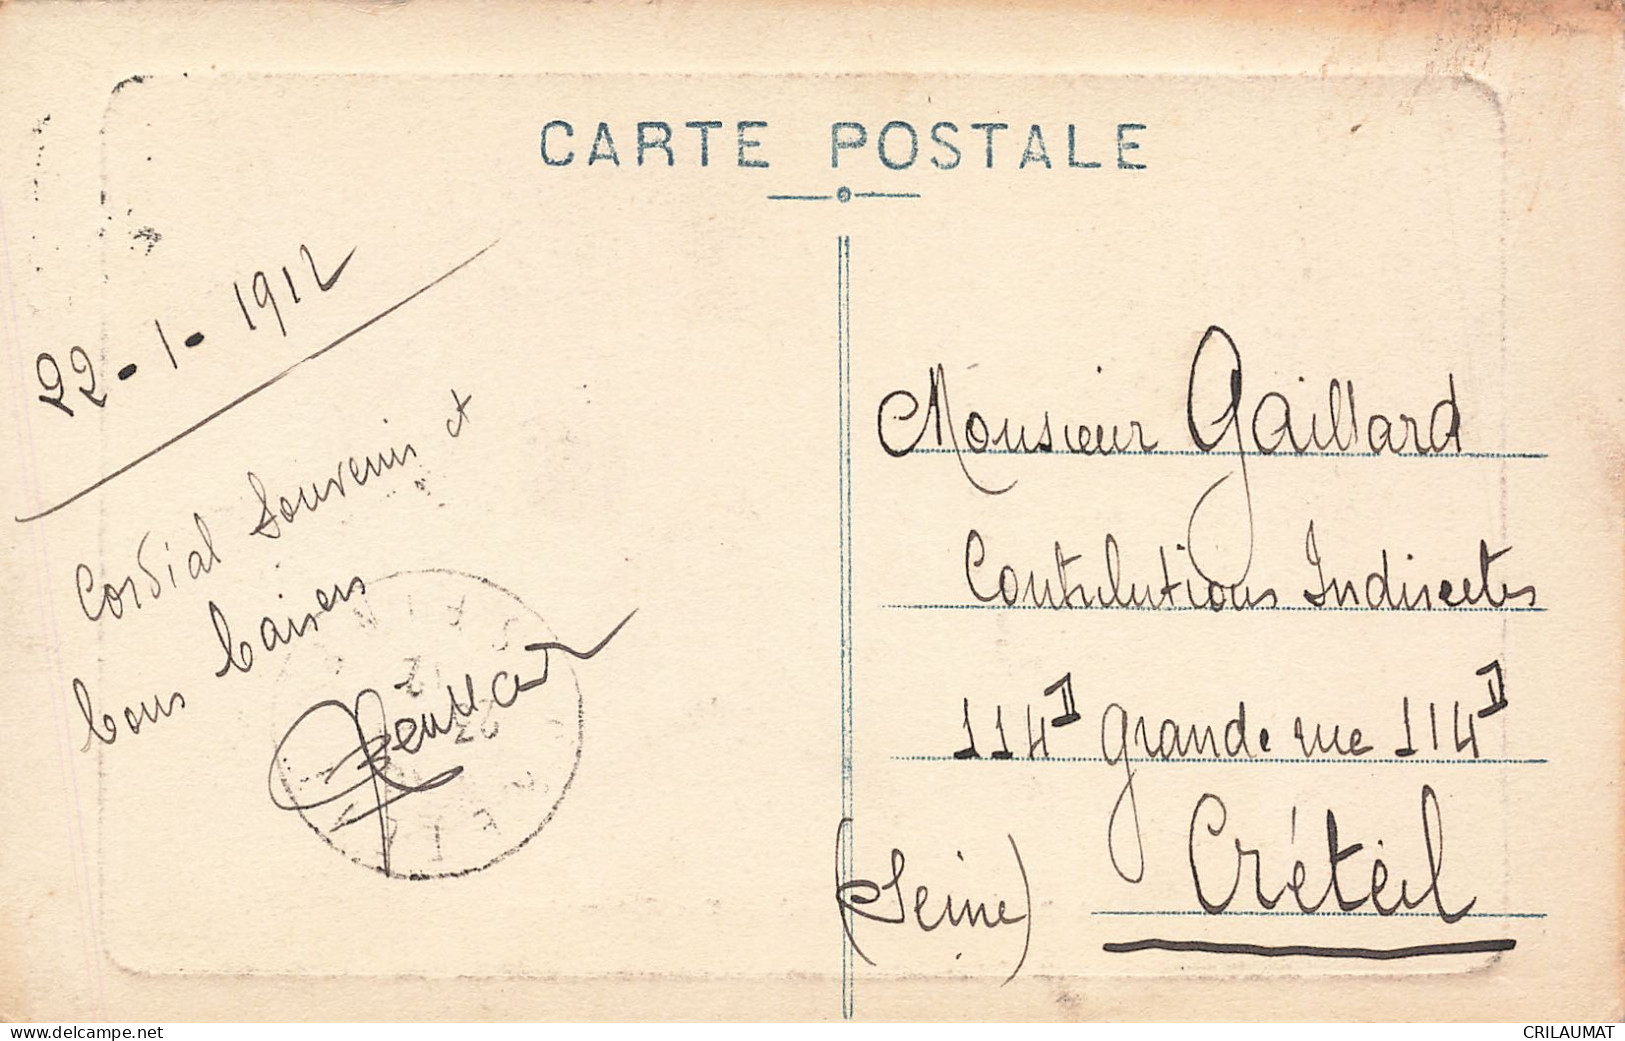 CARTE POSTALE
22-1-1912
Cordial Souvenir et
bons baisers
Monsieur Gaillard
Contributions Indirectes
114D grande rue 114D
Créteil
(Seine)
www.delcampe.net
CRILAUMAT